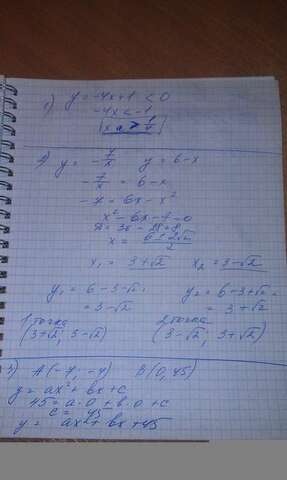 1) y = -4x+1 < 0
-4x < -1
x > 1/4
2) y = -7/x y = 6-x
-7/x = 6-x
-7 = 6x - x²
x² - 6x - 7 = 0
x = (6 ± 2√2)/2
x₁ = 3+√2 x₂ = 3-√2
y₁ = 6-3-√2 = y₂ = 6-3+√2 =
= 3-√2 = 3+√2
1 точка 2 точка
(3+√2, 3-√2) (3-√2, 3+√2)
3) A(-7; -4) B(0, 45)
y = ax² + bx + c
45 = a·0 + b·0 + c
c = 45
y = ax² + bx + 45